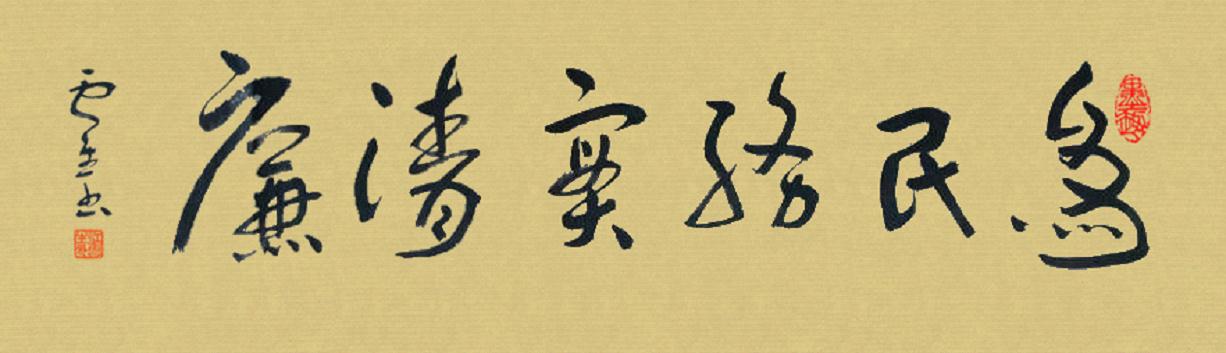 為民務實清廉